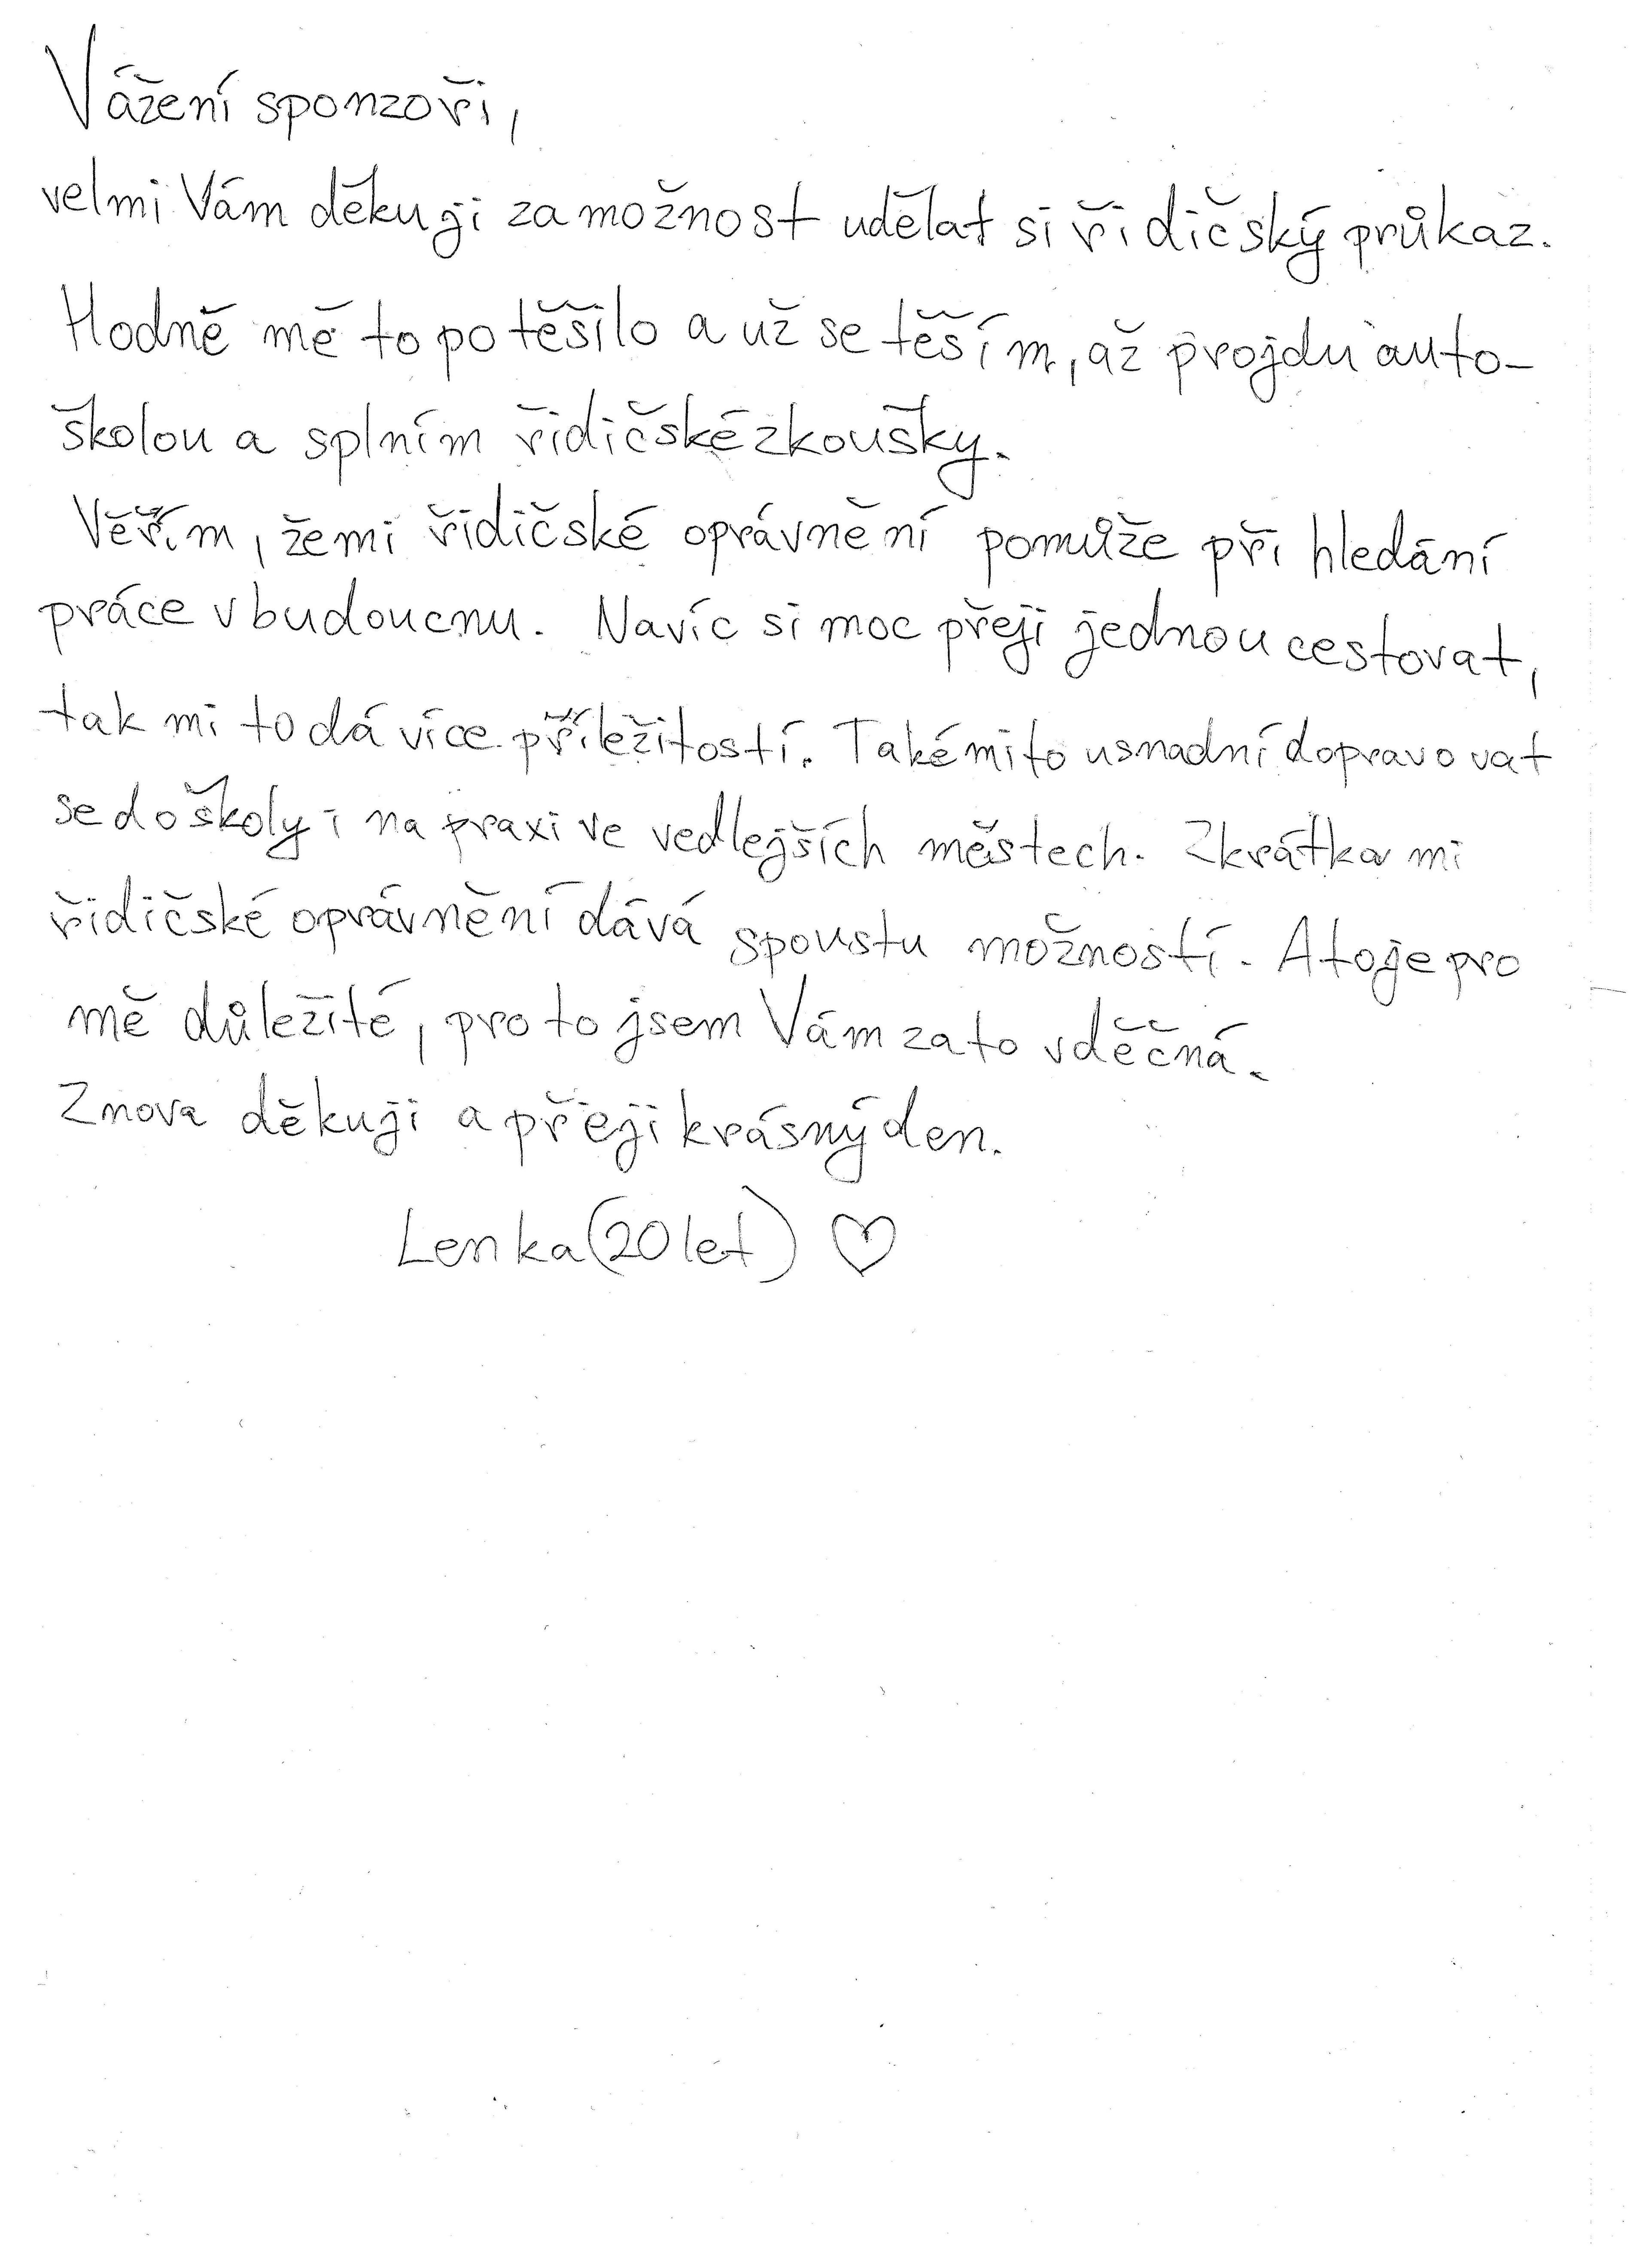 Vážení sponzoři,
velmi Vám děkuji za možnost udělat si řidičský průkaz.
Hodně mě to potěšilo a už se těším, až projdu auto-
školou a splním řidičské zkoušky.
Věřím, že mi řidičské oprávnění pomůže při hledání
práce v budoucnu. Navíc si moc přeji jednou cestovat,
tak mi to dá více příležitostí. Také mi to usnadní dopravovat
se do školy i na praxi ve vedlejších městech. Zkrátka mi
řidičské oprávnění dává spoustu možností. A to je pro
mě důležité, proto jsem Vám za to vděčná.
Znova děkuji a přeji krásný den.
Lenka (20 let) ♡